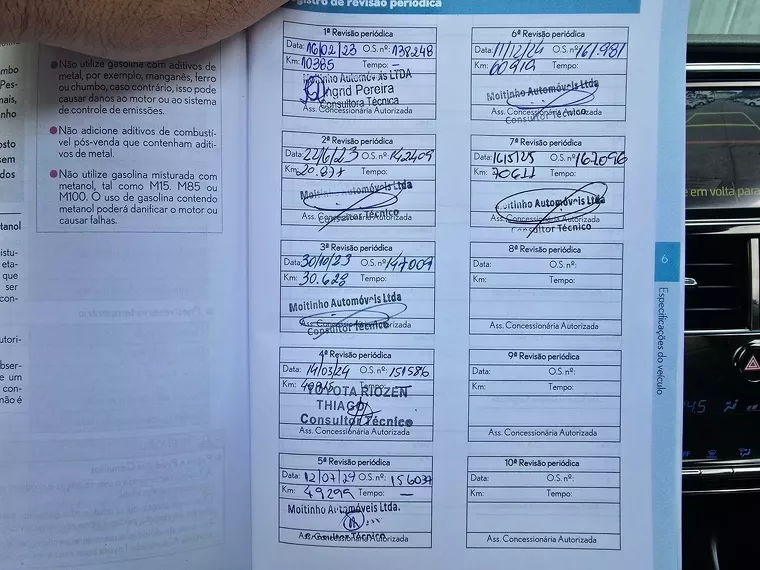 gistro de revisão periódica
Não utilize gasolina com aditivos de
metal, por exemplo, manganês, ferro
ou chumbo, caso contrário, isso pode
causar danos ao motor ou ao sistema
de controle de emissões.
Não adicione aditivos de combustí-
vel pós-venda que contenham aditi-
vos de metal.
Não utilize gasolina misturada com
metanol, tal como M15. M85 ou
M100. O uso de gasolina contendo
metanol poderá danificar o motor ou
causar falhas.
1ª Revisão periódica
Data: 16/02/23 O.S. nº: 138248
Km: 10385 Tempo: —
Moitinho Automóveis LTDA
Ingrid Pereira
Consultora Técnica
Ass. Concessionária Autorizada
2ª Revisão periódica
Data: 22/6/23 O.S. nº: 142409
Km: 20.877 Tempo:
Moitinho Automóveis Ltda
Consultor Técnico
3ª Revisão periódica
Data: 30/10/23 O.S. nº: 147009
Km: 30.628 Tempo:
Moitinho Automóveis Ltda
Ass. Concessionária Autorizada
Consultor Técnico
4ª Revisão periódica
Data: 14/03/24 O.S. nº: 151586
Km: Tempo:
TOYOTA RIOZEN
THIAGO
Consultor Técnico
Ass. Concessionária Autorizada
5ª Revisão periódica
Data: 12/07/24 O.S. nº: 156037
Km: 49299 Tempo: —
Moitinho Automóveis Ltda.
Ass. Concessionária Autorizada
Consultor Técnico
6ª Revisão periódica
Data: 11/12/24 O.S. nº: 161.981
Km: 60919 Tempo:
Moitinho Automóveis Ltda
Ass. Concessionária Autorizada
Consultor Técnico
7ª Revisão periódica
Data: 16/5/25 O.S. nº: 167096
Km: 70611 Tempo:
Moitinho Automóveis Ltda
Ass. Concessionária Autorizada
Consultor Técnico
8ª Revisão periódica
Data: O.S. nº:
Km: Tempo:
Ass. Concessionária Autorizada
9ª Revisão periódica
Data: O.S. nº:
Km: Tempo:
Ass. Concessionária Autorizada
10ª Revisão periódica
Data: O.S. nº:
Km: Tempo:
Ass. Concessionária Autorizada
6
Especificações do veículo
e em volta para